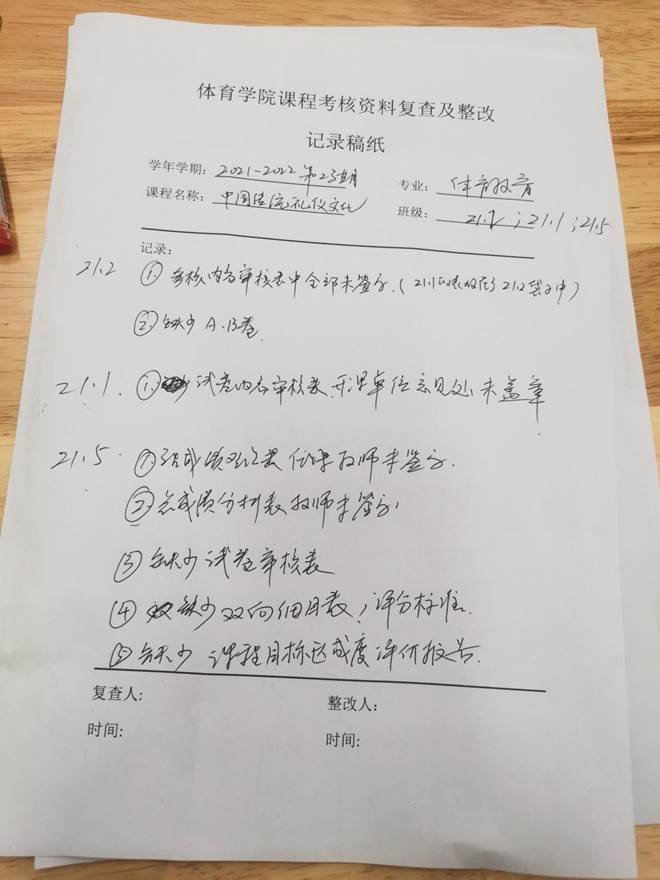 体育学院课程考核资料复查及整改
记录稿纸
学年学期: 2021-2022 第2学期 专业: 体育教育
课程名称: 中国传统礼仪文化 班级: 21.2 ; 21.1 ; 21.5
记录:
21.2 ① 考核内容审核表中全部未签字.(21.1 21.2袋子中)
② 缺少 A.B卷.
21.1. ① 试卷内容审核表.开课单位意见处未盖章
21.5. ① 成绩登记表任课教师未签字.
② 总成绩分析表教师未签字,
③ 缺少试卷审核表
④ 缺少双向细目表,评分标准.
⑤ 缺少 课程目标达成度评价报告.
复查人: 整改人:
时间: 时间: